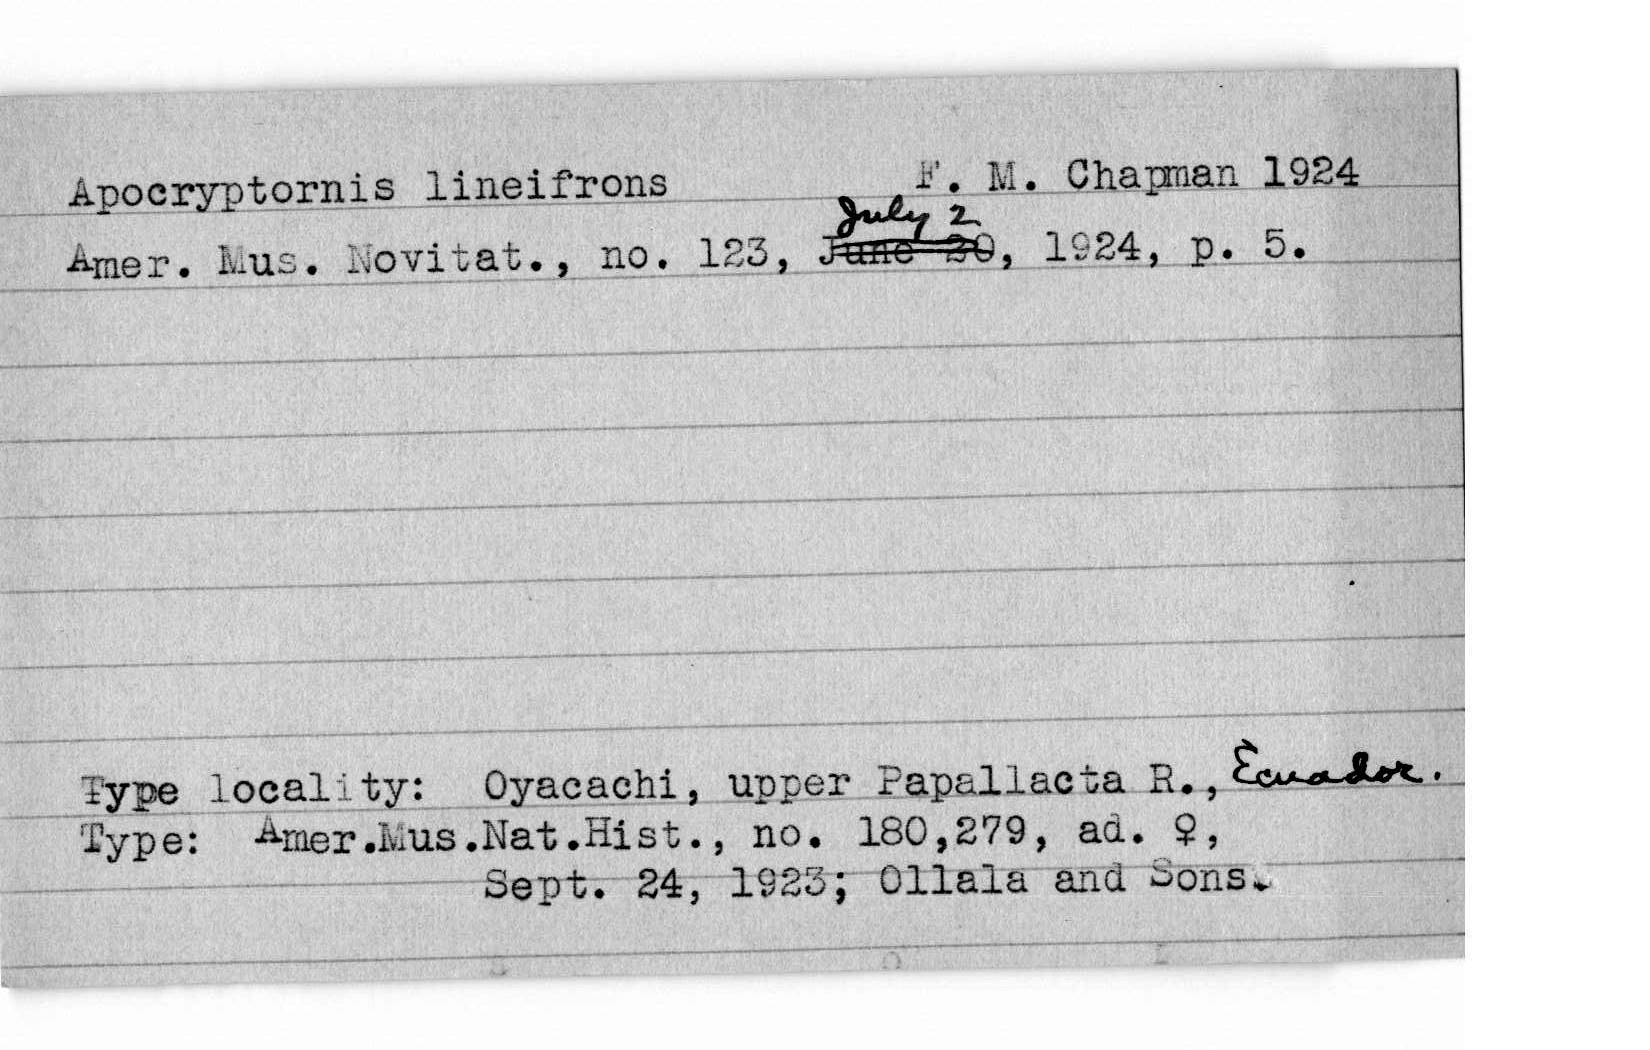 Apocryptornis lineifrons F. M. Chapman 1924
July 2
Amer. Mus. Novitat., no. 123, June 20, 1924, p. 5.
Type locality: Oyacachi, upper Papallacta R., Ecuador.
Type: Amer.Mus.Nat.Hist., no. 180,279, ad. ♀,
Sept. 24, 1923; Ollala and Sons.